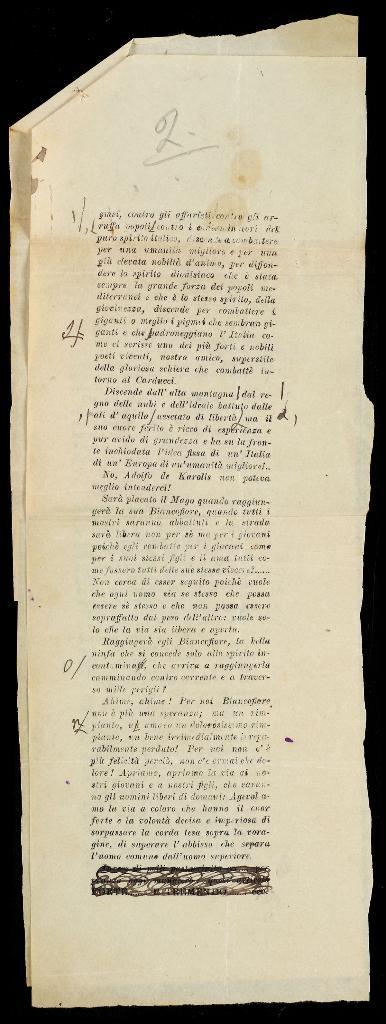 2.
gnei, contro gli affaristi contro gli ar-
ruffa popoli contro i
puro spirito italico, discende a combattere
per una umanità migliore e per una
più elevata nobiltà d'animo, per diffon-
dere lo spirito dionisiaco che è stata
sempre la grande forza dei popoli me-
diterrenei e che è lo stesso spirito, della
giovinezza, discende per combattere i
giganti o meglio i pigmei che sembran gi-
ganti e che padroneggiano l'Italia co-
me ci scrisse uno dei più forti e nobili
poeti viventi, nostro amico, superstite
della gloriosa schiera che combattè in-
torno al Carducci.
Discende dall'alta montagna dal re-
gno delle nubi e dell'ideale battuto dalle
ali d'aquila assetato di libertà ma il
suo cuore ferito è ricco di esperienza e
pur avido di grandezza e ha su la fron-
te inchiodata l'idea fissa di un'Italia
di un'Europa di un'umanità migliore!..
No, Adolfo de Karolis non poteva
meglio intenderci!
Sarà placato il Mago quando raggiun-
gerà la sua Biancofiore, quando tutti i
mostri saranno abbattuti e la strada
sarà libera non per sè ma per i giovani
poichè egli combatte per i giovani come
per i suoi stessi figli e li ama tutti co-
me fossero tutti delle sue stesse viscere!.....
Non cerca di esser seguito poichè vuole
che ogni uomo sia se stesso che possa
essere sè stesso e che non possa essere
sopraffatto dal peso dell'altro: vuole so-
lo che la via sia libera e aperta.
Raggiungerà egli Biancofiore, la bella
ninfa che si concede solo allo spirito in-
contaminato, che arriva a raggiungerla
camminando contro corrente e a traver-
so mille perigli?
Ahime, ahime! Per noi Biancofiore
non è più una speranza; ma un rim-
pianto, un amaro un dolorosissimo rim-
pianto, un bene irrimediabilmente irrepa-
rabilmente perduto! Per noi non c'è
più felicità perciò, non c'è ormai che do-
lore! Apriamo, apriamo la via ai no-
stri giovani e a nostri figli, che saran-
no gli uomini liberi di domani: Agevolia-
mo la via a coloro che hanno il cuor
forte e la volontà decisa e imperiosa di
sorpassare la corda tesa sopra la vora-
gine, di superare l'abbisso che separa
l'uomo comune dall'uomo superiore.